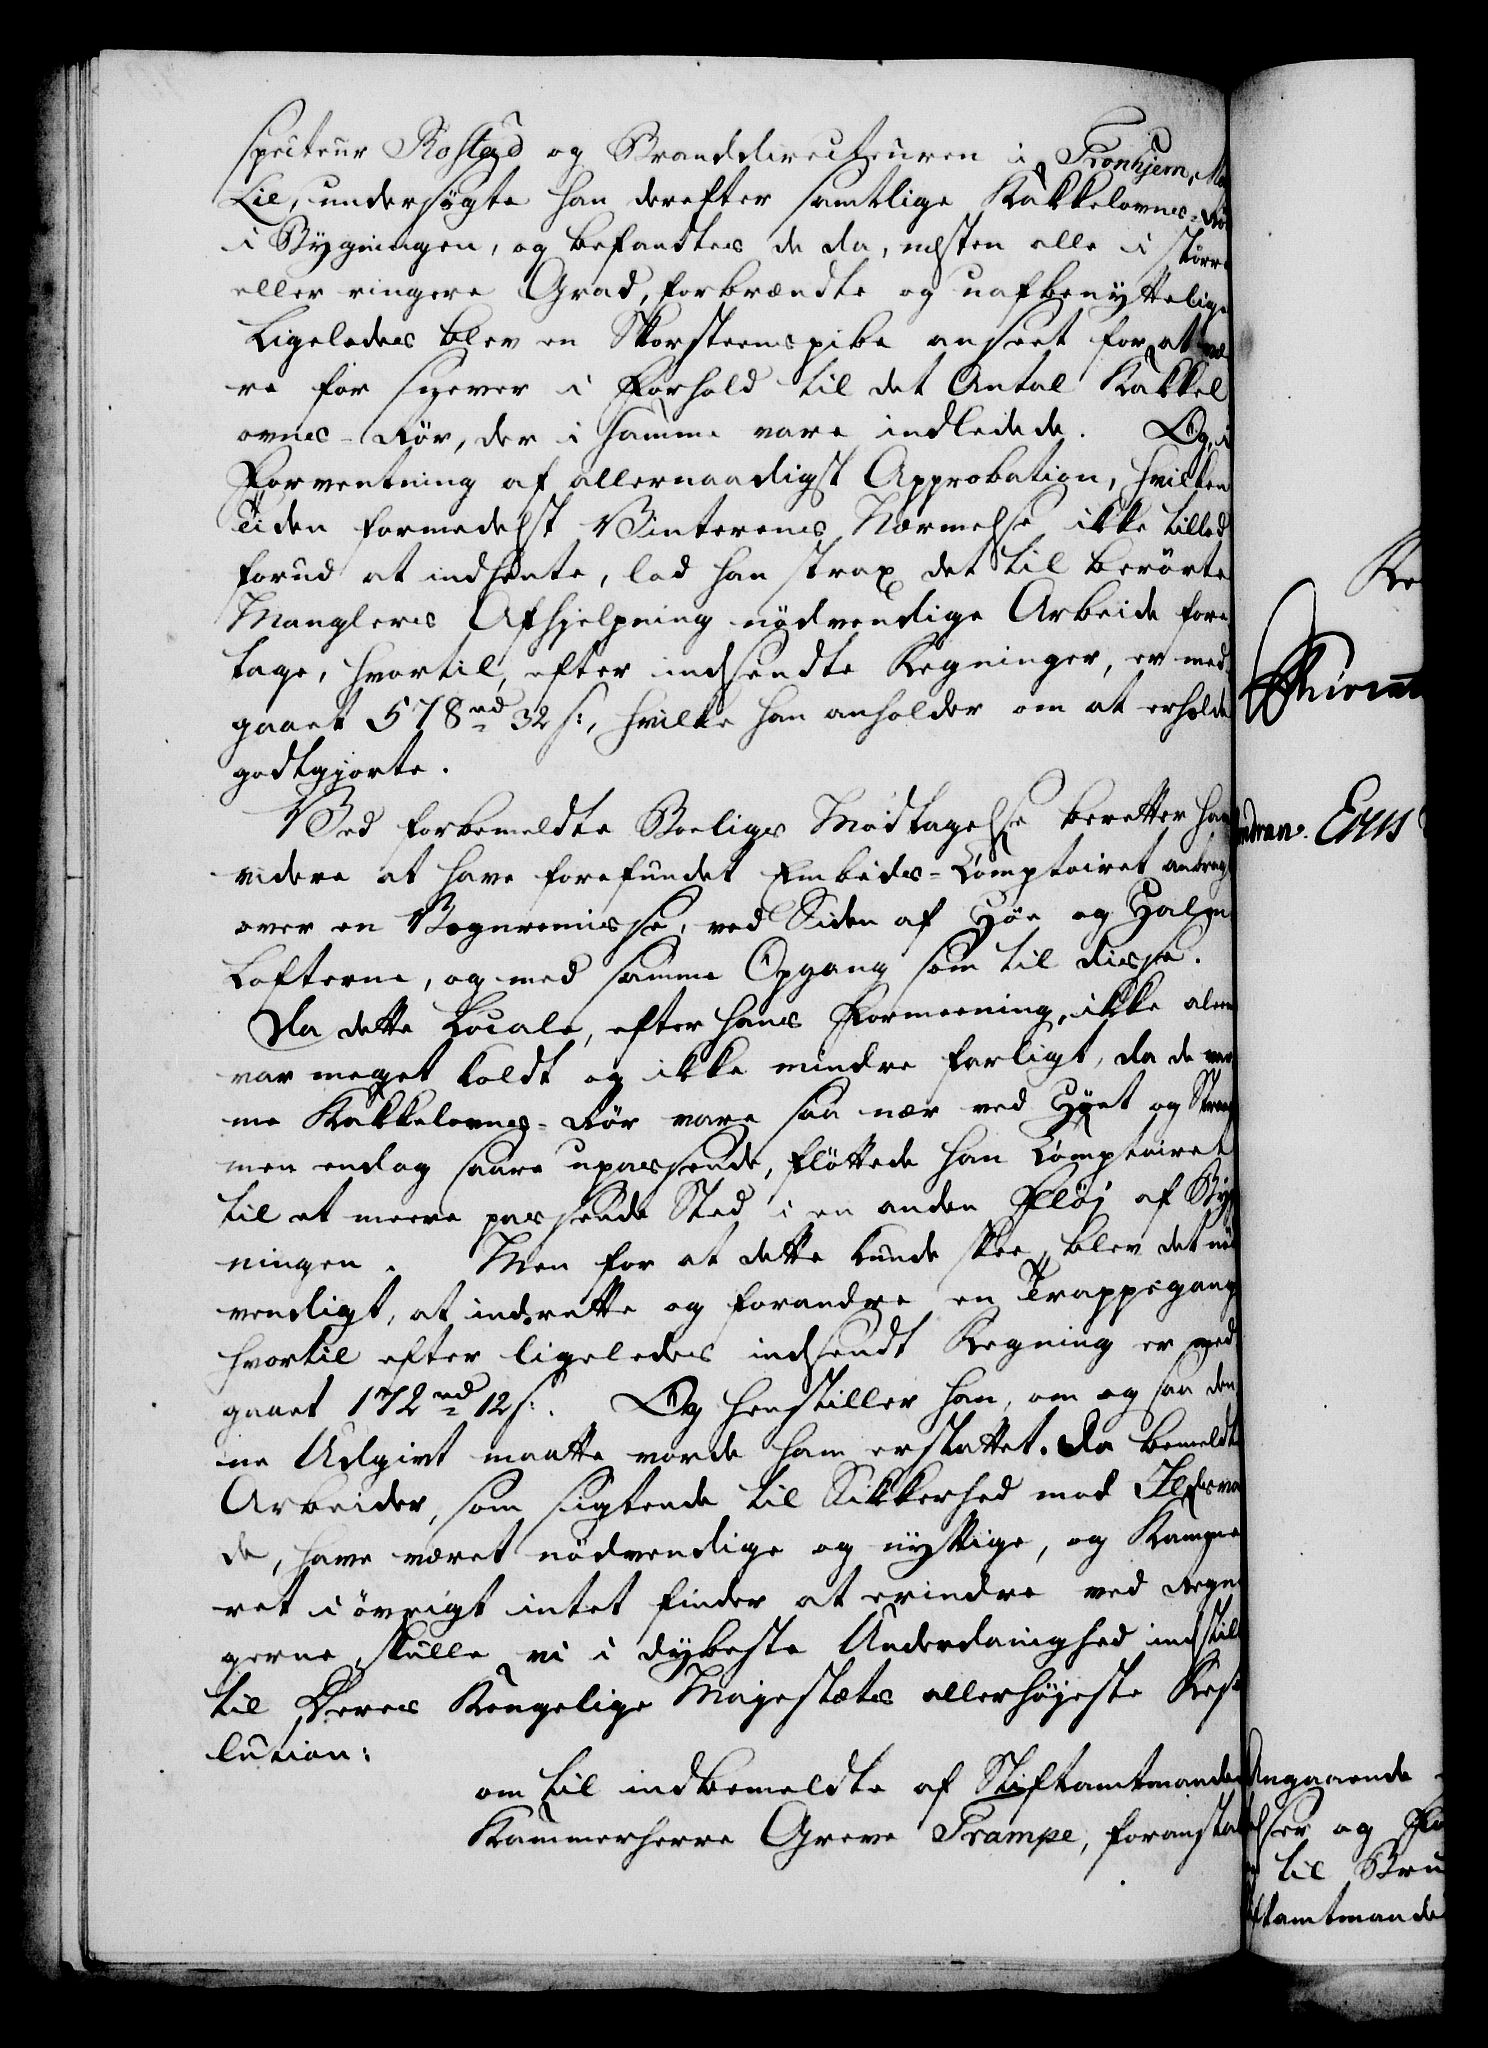 specteur Rostad og Branddirecteuren i Tronhjem,
Lie, undersøgte han derefter samtlige Kakkelovns-Rör
i Bygningen, og befandtes de da, næsten alle i større
eller ringere Grad, forbrændte og uafbenyttelige
Ligeledes blev en Skorsteenspibe anseet for at væ
re for snever i Forhold til det Antal Kakkel
ovns-Rör, der i samme vare indledede. Og, i
Forventning af allernaadigst Approbation, hvilken
Tiden formedelst Vinterens Nærmelse ikke tillod
forud at indhente, lod han strax det til berörte
Manglers Afhjelpning nödvendige Arbeide fore
tage, hvortil, efter indsendte Regninger, er med
gaaet 578 rd 32 s:, hvilke han anholder om at erholde
godtgjorte.
Ved forbemeldte Boeligs Modtagelse beretter han
videre at have forefundet Embeds-Comptoiret anbragt
over en Vognremisse, ved Siden af Höe og Halm
Lofterne, og med samme Opgang som til disse.
Da dette Locale, efter hans Formeening, ikke alene
var meget koldt og ikke mindre farligt, da de var
me Kakkelovns-Rör vare saa nær ved Höet og
men endog saare upassende, flöttede han Comptoiret
til et meere passende Sted i en anden Flöj af Byg
ningen. Men for at dette kunde skee, blev det nöd
vendigt, at indrette og forandre en Trappegang
hvortil efter ligeledes indsendt Regning er med
gaaet 172 rd 12 s:. Og henstiller han, om og saa den
ne Udgivt maatte vorde ham erstattet. Da bemeldte
Arbeider, som sigtende til Sikkerhed mod Ildsvaa
de, have været nödvendige og nyttige, og Kamme
ret i övrigt intet finder at erindre ved Regnin
gerne, skulle vi i dybeste Underdanighed indstille
til Deres Kongelige Majestæts allerhöjeste Reso
lution:
om til indbemeldte af Stiftamtmanden
Kammerherre Greve Trampe, foranstal
Erus
Angaaende
elser og
til Bru
ftamtmande